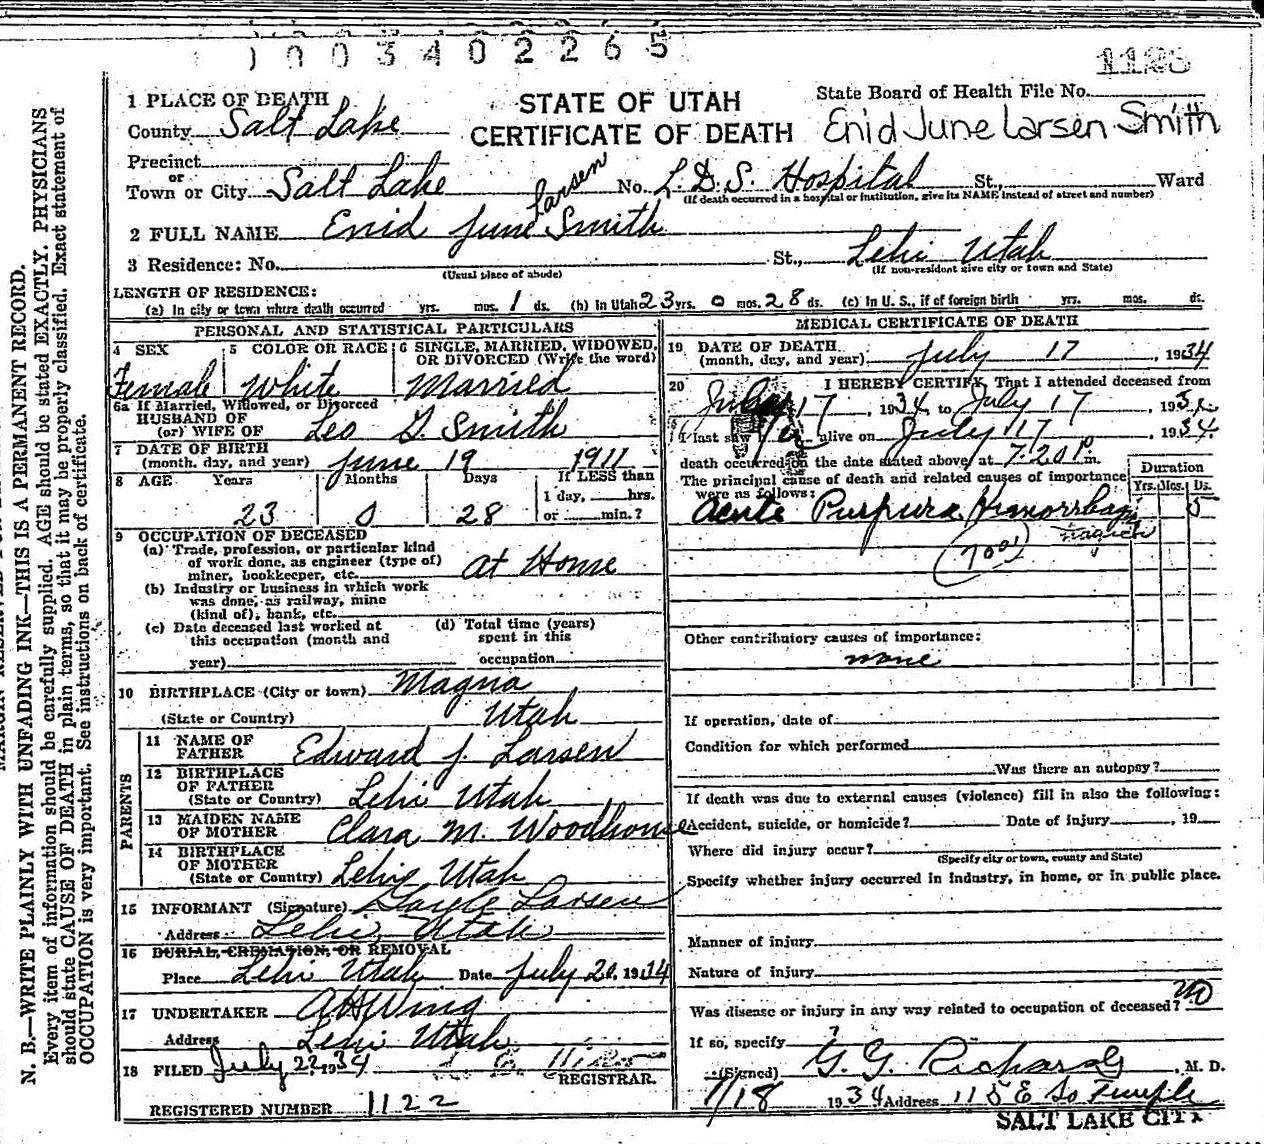 1003402265
1 PLACE OF DEATH
County Salt Lake
STATE OF UTAH
CERTIFICATE OF DEATH
State Board of Health File No.
Enid June Larsen Smith
Precinct
or
Town or City Salt Lake No. L.D.S. Hospital St., Ward
(If death occurred in a hospital or institution, give its NAME instead of street and number)
Larsen
2 FULL NAME Enid June Smith
3 Residence: No. St., Lehi Utah
(Usual place of abode) (If non-resident give city or town and State)
LENGTH OF RESIDENCE:
(a) In city or town where death occurred yrs. mos. 1 ds. (b) In Utah 23 yrs. 0 mos. 28 ds. (c) In U. S., if of foreign birth yrs. mos. ds.
PERSONAL AND STATISTICAL PARTICULARS
4 SEX 5 COLOR OR RACE 6 SINGLE, MARRIED, WIDOWED, OR DIVORCED (Write the word)
Female White Married
6a If Married, Widowed, or Divorced
HUSBAND OF
(or) WIFE OF Leo G. Smith
7 DATE OF BIRTH
(month, day, and year) June 19 1911
8 AGE Years Months Days If LESS than
1 day, hrs.
23 0 28 or min.?
9 OCCUPATION OF DECEASED
(a) Trade, profession, or particular kind
of work done, as engineer (type of)
miner, bookkeeper, etc. at Home
(b) Industry or business in which work
was done, as railway, mine
(kind of), bank, etc.
(c) Date deceased last worked at
this occupation (month and
year)
(d) Total time (years)
spent in this
occupation
10 BIRTHPLACE (City or town) Magna
(State or Country) Utah
PARENTS
11 NAME OF
FATHER Edward J. Larsen
12 BIRTHPLACE
OF FATHER
(State or Country) Lehi Utah
13 MAIDEN NAME
OF MOTHER Clara M. Woodhouse
14 BIRTHPLACE
OF MOTHER
(State or Country) Lehi Utah
15 INFORMANT (Signature) Larsen
Address Lehi, Utah
16 BURIAL, CREMATION, OR REMOVAL
Place Lehi Utah Date July 20, 1934
17 UNDERTAKER A H Wing
Address Lehi Utah
18 FILED July 22, 1934
REGISTRAR.
REGISTERED NUMBER 1122
MEDICAL CERTIFICATE OF DEATH
19 DATE OF DEATH
(month, day, and year) July 17, 1934
20 I HEREBY CERTIFY, That I attended deceased from
July 17, 1934 to July 17, 1934
I last saw alive on July 17, 1934.
death occurred on the date stated above, at 7:20 P. m.
The principal cause of death and related causes of importance
were as follows:
Duration
Yrs. Mos. Ds.
Acute Purpura 5
Other contributory causes of importance:
none
If operation, date of
Condition for which performed
Was there an autopsy?
If death was due to external causes (violence) fill in also the following:
Accident, suicide, or homicide? Date of injury , 19
Where did injury occur?
(Specify city or town, county and State)
Specify whether injury occurred in industry, in home, or in public place.
Manner of injury
Nature of injury
Was disease or injury in any way related to occupation of deceased? no
If so, specify
(Signed) G. G. Richards, M. D.
7/18 1934 Address 115 E So Temple
SALT LAKE CITY
N. B.—WRITE PLAINLY WITH UNFADING INK—THIS IS A PERMANENT RECORD.
Every item of information should be carefully supplied. AGE should be stated EXACTLY. PHYSICIANS
should state CAUSE OF DEATH in plain terms, so that it may be properly classified. Exact statement of
OCCUPATION is very important. See instructions on back of certificate.